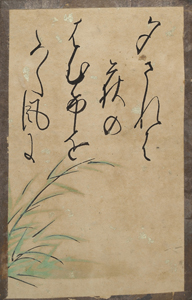 夕されば
荻の
はむけを
ふく風に